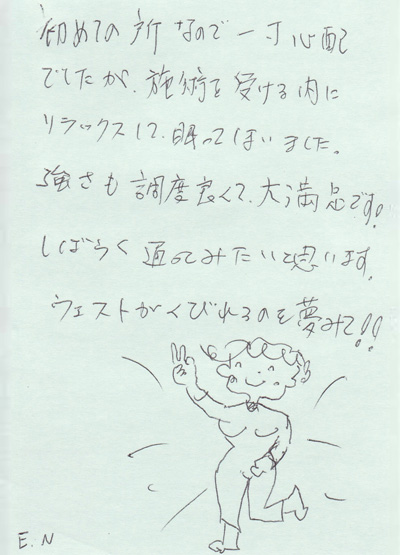 初めての所なので一寸心配
でしたが、施術を受ける内に
リラックスして、眠ってしまいました。
強さも調度良くて、大満足です!
しばらく通ってみたいと思います。
ウェストがくびれるのを夢みて!!
E.N